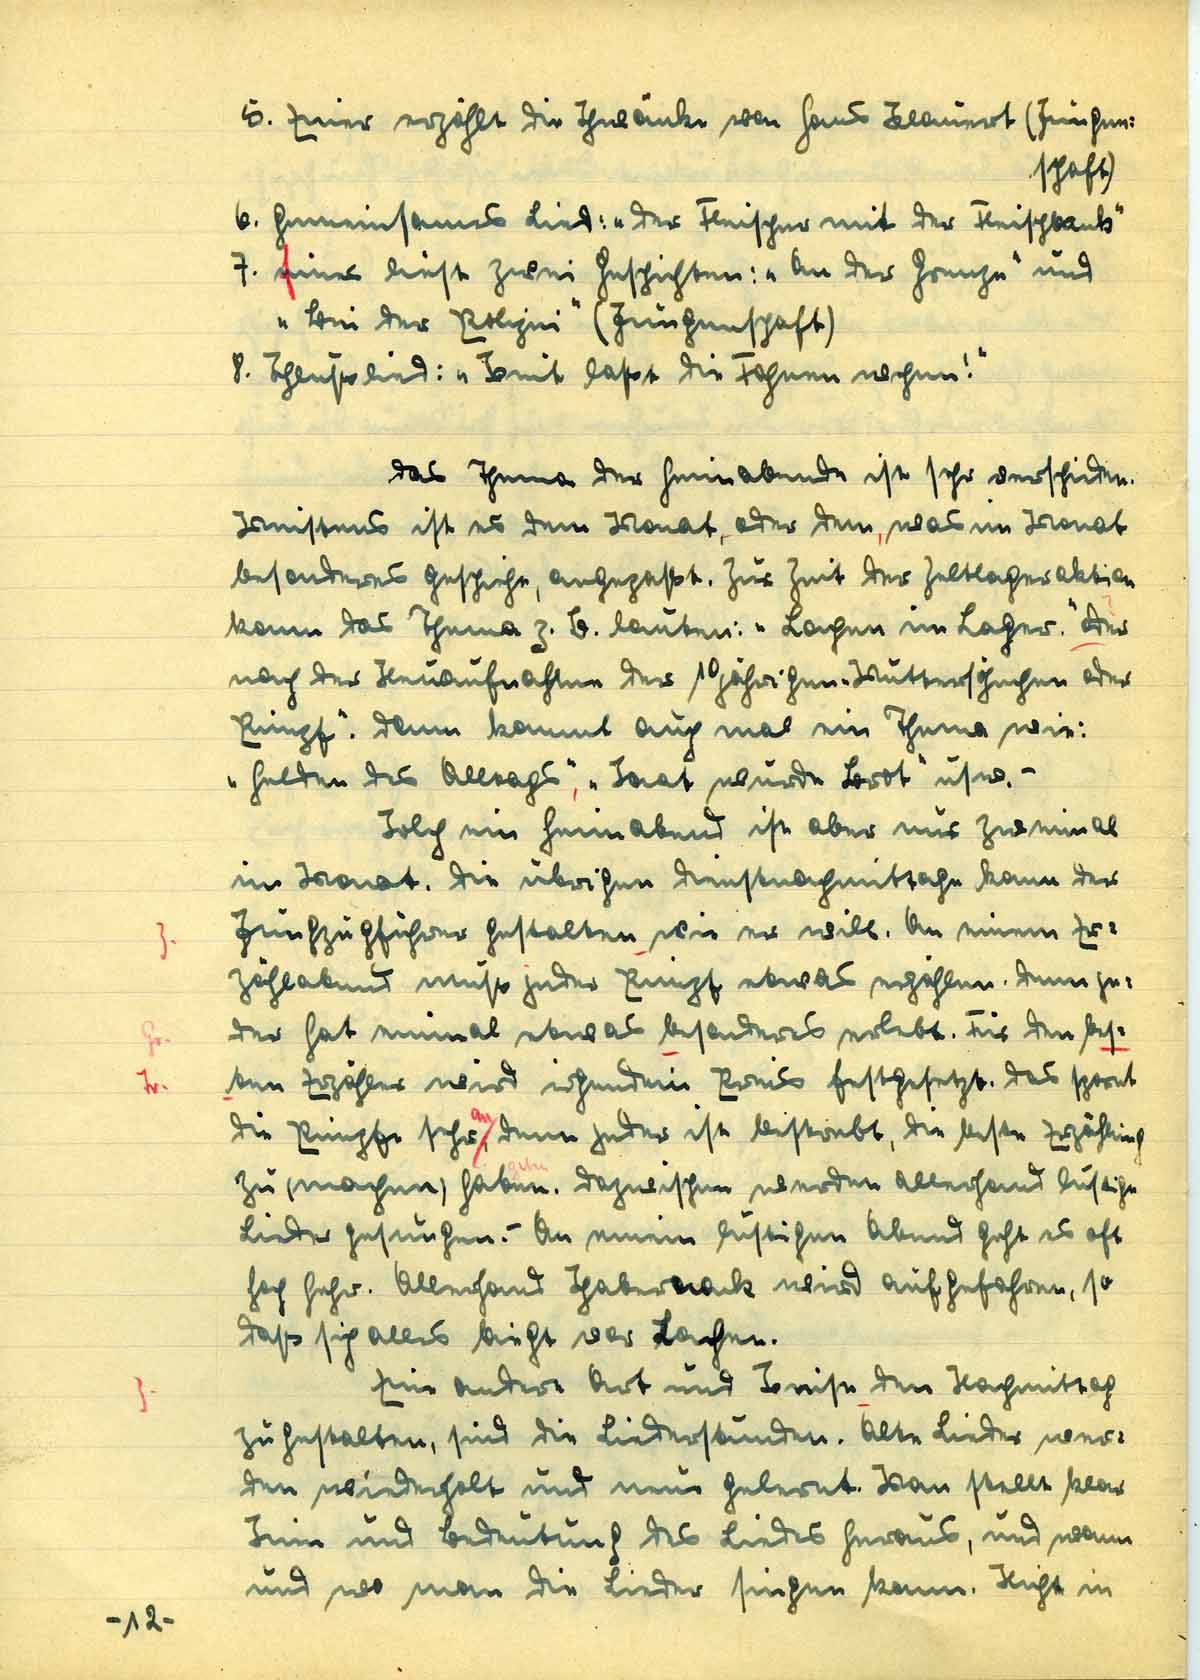 5. Einer erzählt die Schwänke von Hans Klauert (Jungen=
schaft)
6. Gemeinsames Lied: „Der Fleischer mit der Fleischbank"
7. einer liest zwei Geschichten: „An der Grenze" und
„Bei der Polizei" (Jungenschaft)
8. Schlußlied: „Weit laßt die Fahnen wehen!"
Das Thema der Heimabende ist sehr verschieden.
Meistens ist es dem Monat, oder dem, was im Monat
besonderes geschieht, angepaßt. Zur Zeit der Zeltlageraktion
kann das Thema z. B. lauten: „Lachen im Lager." Oder
nach der Neuaufnahme der 10jährigen „Muttersöhnchen oder
Pimpf". Dann kommt auch mal ein Thema wie:
„Helden des Alltags", „Saat wurde Brot" usw. –
Solch ein Heimabend ist aber nur zweimal
im Monat. Die übrigen Dienstnachmittage kann der
J. Jungzugführer gestalten wie er will. An einem Er=
zählabend muß jeder Pimpf etwas erzählen. Denn je=
Gr. der hat einmal etwas besonderes erlebt. Für den bes=
Tr. ten Erzähler wird irgendein Preis festgesetzt. Das spornt
die Pimpfe sehr an, denn jeder ist bestrebt, die beste Erzählung
zu (machen) haben. Dazwischen werden allerhand lustige
Lieder gesungen. – An einem lustigen Abend geht es oft
hoch hehr. Allerhand Schabernack wird aufgefahren, so
daß sich alles biegt vor Lachen.
J. Eine andere Art und Weise den Nachmittag
zu gestalten, sind die Liederstunden. Alte Lieder wer=
den wiederholt und neue gelernt. Man stellt klar
Sinn und Bedeutung des Liedes heraus, und wann
und wo man die Lieder singen kann. Nicht in
-12-